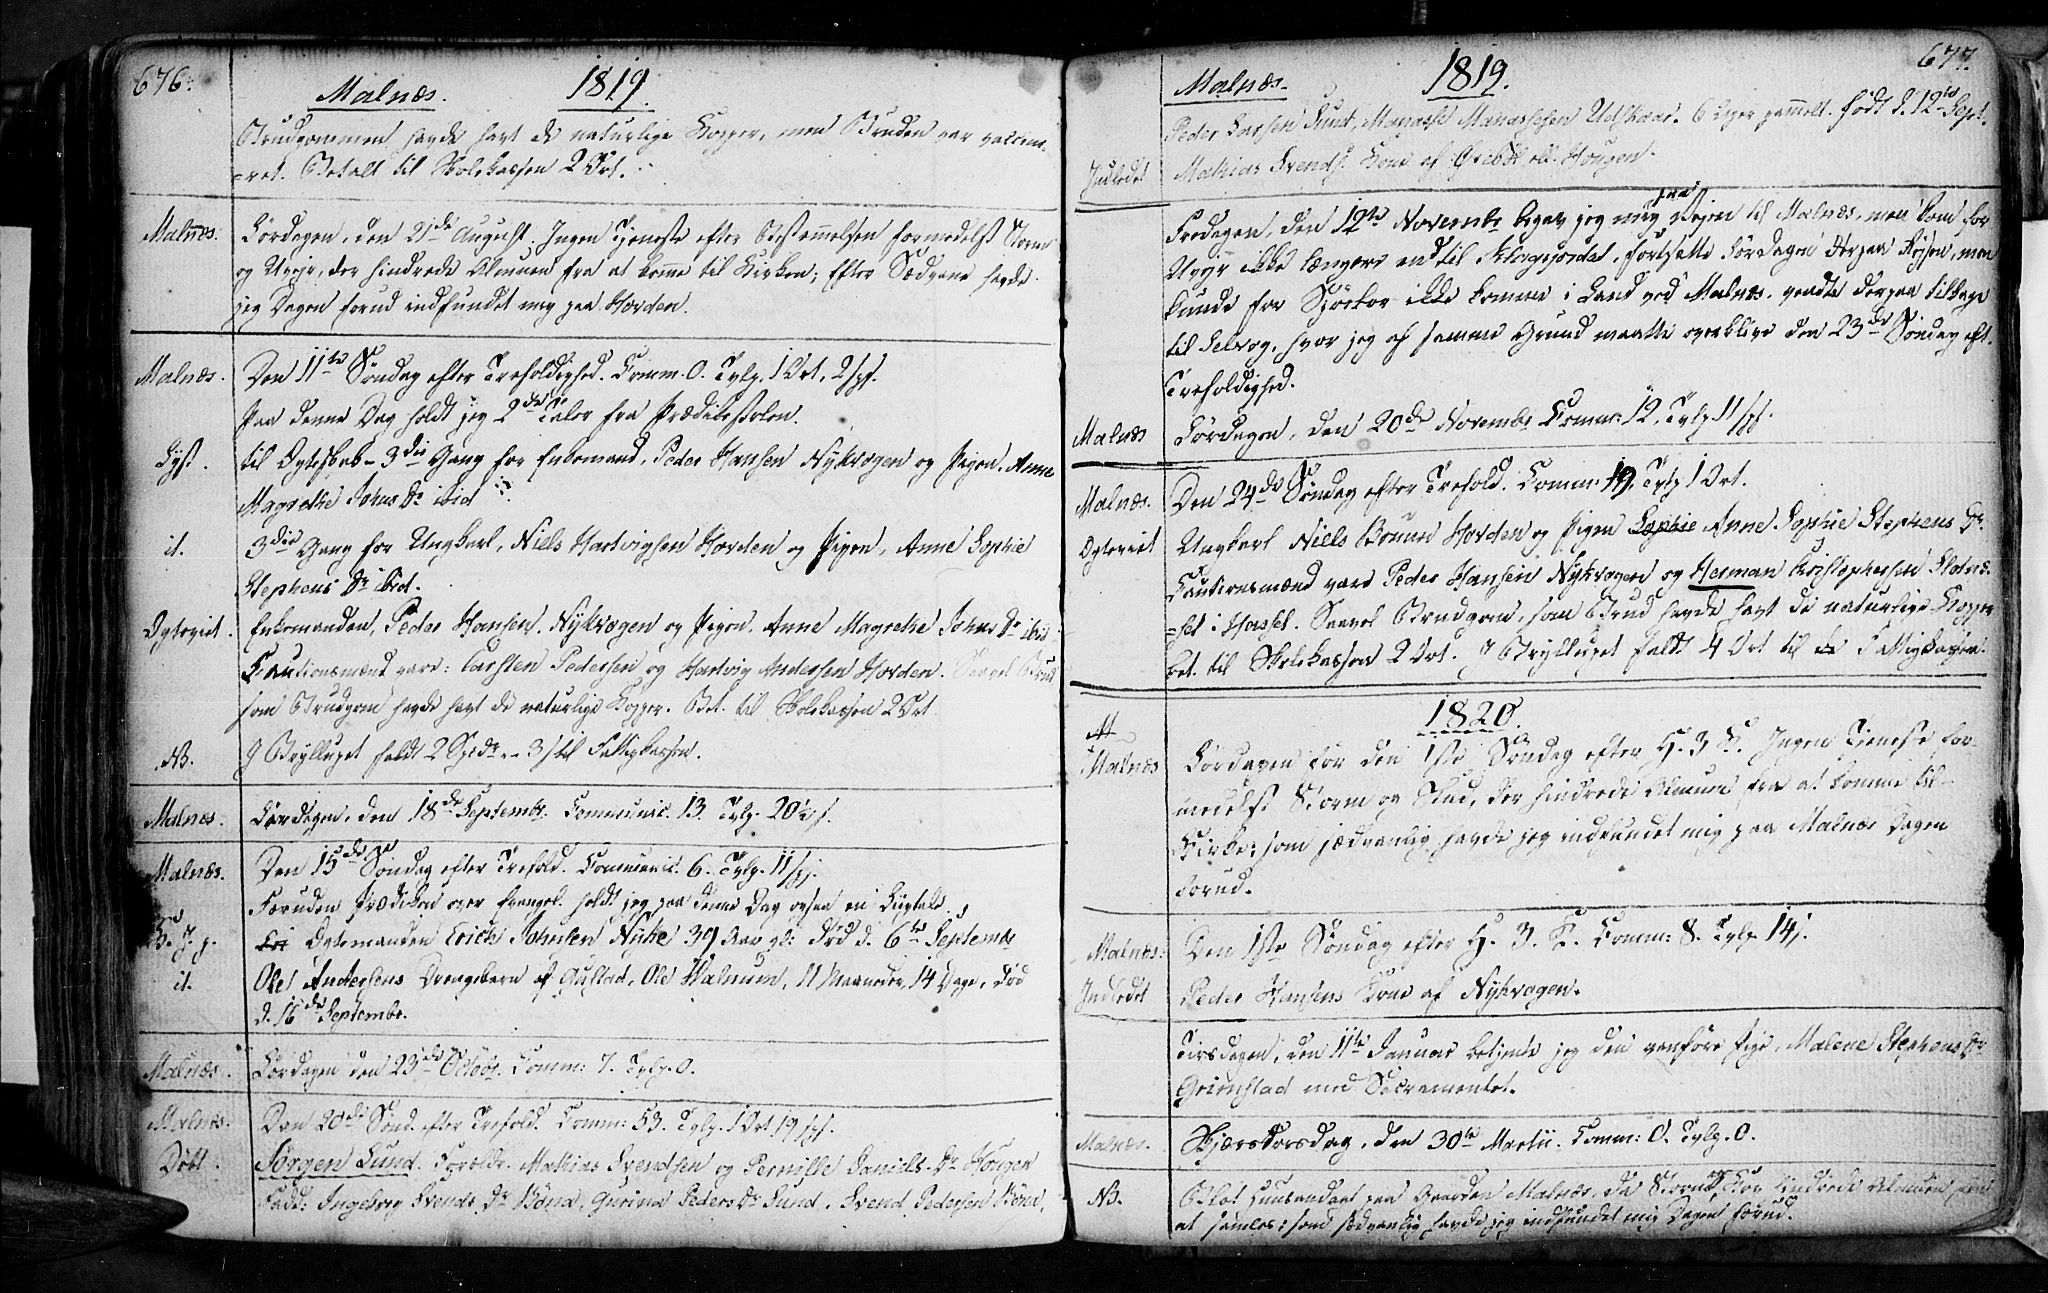 676.
Malnæs. 1819.
Brudgommen havde havt de naturlige Kopper, men Bruden var vaccine-
-ret. Betalt til Skolekassen 2 Ort.
Malnæs. Lørdagen, den 21de August. Ingen Tjeneste efter Bestemmelsen formedelst Storm
og Uveir, der hindrede Almuen fra at komme til Kirken; Efter Sædvane havde
jeg Dagen forud indfundet mig paa Hovden.
Malnæs. Den 11te Søndag efter Trefoldighed. Comm. 0. Tvlg. 1 Ort, 2 sz.
Paa denne Dag holdt jeg 2de Taler fra Prædikestolen.
Lyst. til Ægteskab - 3die Gang for Enkemand, Peder Hansen Nykvogen og Pigen, Anne
Magrethe Johns Dr. ibid
it. 3die Gang for Ungkarl, Niels Hartvigsen Hovden og Pigen, Anne Sophie
Stephens Dr. ibid.
Ægteviet. Enkemanden, Peder Hansen, Nykvogen og Pigen, Anne Magrethe Johns Dr. ibid.
Cautionsmænd vare: Carsten Pedersen og Hartvig Andersen Hovden. Saavel Brud
som Brudgom havde havt de naturlige Kopper. Bet. til Skolekassen 2 Ort
NB. I Bryllupet faldt 2 Spdr. - 3 s til Fattigkassen.
Malnæs. Lørdagen, den 18de Septembr. Communic. 13. Tvlg. 20 sz.
Malnæs. Den 15de Søndag efter Trefold. Communic. 6. Tvlg. 11 sz.
Foruden Prædiken over Evangel. holdt jeg paa denne Dag ogsaa en Liigtale.
B. J. J. Ægtemanden Erich Johnsen Nyke 39 Aar gl: død d. 6te Septembr
it. Ole Andersens Drengebarn af Gustad, Ole Halmum, 11 Maaneder, 14 Dage, død
d. 16de Septembr.
Malnæs. Lørdagen den 23de Octobr. Comm: 7. Tvlg. 0.
Malnæs. Den 20de Sønd. efter Trefold. Comm: 53. Tvlg. 1 Ort 19 sz.
Døbt. Jørgen Lund. Forældr. Mathias Svendsen og Pernille Daniels Dr. Hougen
Fadd: Ingebrig Svends Dr. Bønd, Gurina Peders Dr. Sund, Svend Pedersen
677.
Malnæs. 1819.
Peder Larsen Sund, Manasse Manassesen Udskaar. 6 Uger gammelt. født d. 12te Sept.
Indledet Mathias Svends. Kone af Hougen.
Fredagen, den 12te Novembr begav jeg mig paa Vejen til Malnæs, men kom for
Uveir ikke længere end til Klagefjordet, fortsatte Lørdagen derpaa Rejsen, men
kunde for Sjøekov ikke komme i Land ved Malnæs, vendte derpaa tilbage
til Selvog, hvor jeg af samme Grund maatte overblive den 23de Søndag eft.
Trefoldighed.
Malnæs Lørdagen, den 20de Novembr Comm: 12. Tvlg. 11 sz.
Malnæs. Den 24de Søndag efter Trefold. Comm: 19. Tvlg. 1 Ort.
Ægteviet Ungkarl Niels Hovden og Pigen Sophie Anne Sophie Stephens Dr.
Cautionsmænd vare Peder Hansen Nykvogen og Herman Cristophersen
i Hassel. Saavel Brudgom, som Brud havde havt de naturlige Kopper
bet. til Skolekassen 2 Ort. I Bryllupet faldt 4 Ort til Fattigkassen.
1820.
Malnæs Lørdagen før den 1ste Søndag efter H. 3 K. Ingen Tjeneste for-
medelst Storm og Slud, der hindrede Almuen fra at komme til
Kirke; som sædvanlig havde jeg indfundet mig paa Malnæs Dagen
forud.
Malnæs. Den 1ste Søndag efter H. 3. K. Comm: 8. Tvlg. 14 s.
Indledet Peder Hansens Kone af Nykvogen.
Tirsdagen, den 11te Januar betjente jeg den vanføre Pige, Malene Stephens Dr.
Grimstad med Sacramentet.
Malnæs. Skjærtorsdag, den 30te Martii. Comm: 0. Tvlg. 0.
NB. Blot Huusandagt paa Gaarden Malnæs, da Storm og hindrede Almuen fra
at samles: som sædvanlig havde jeg indfundet mig Dagen forud.